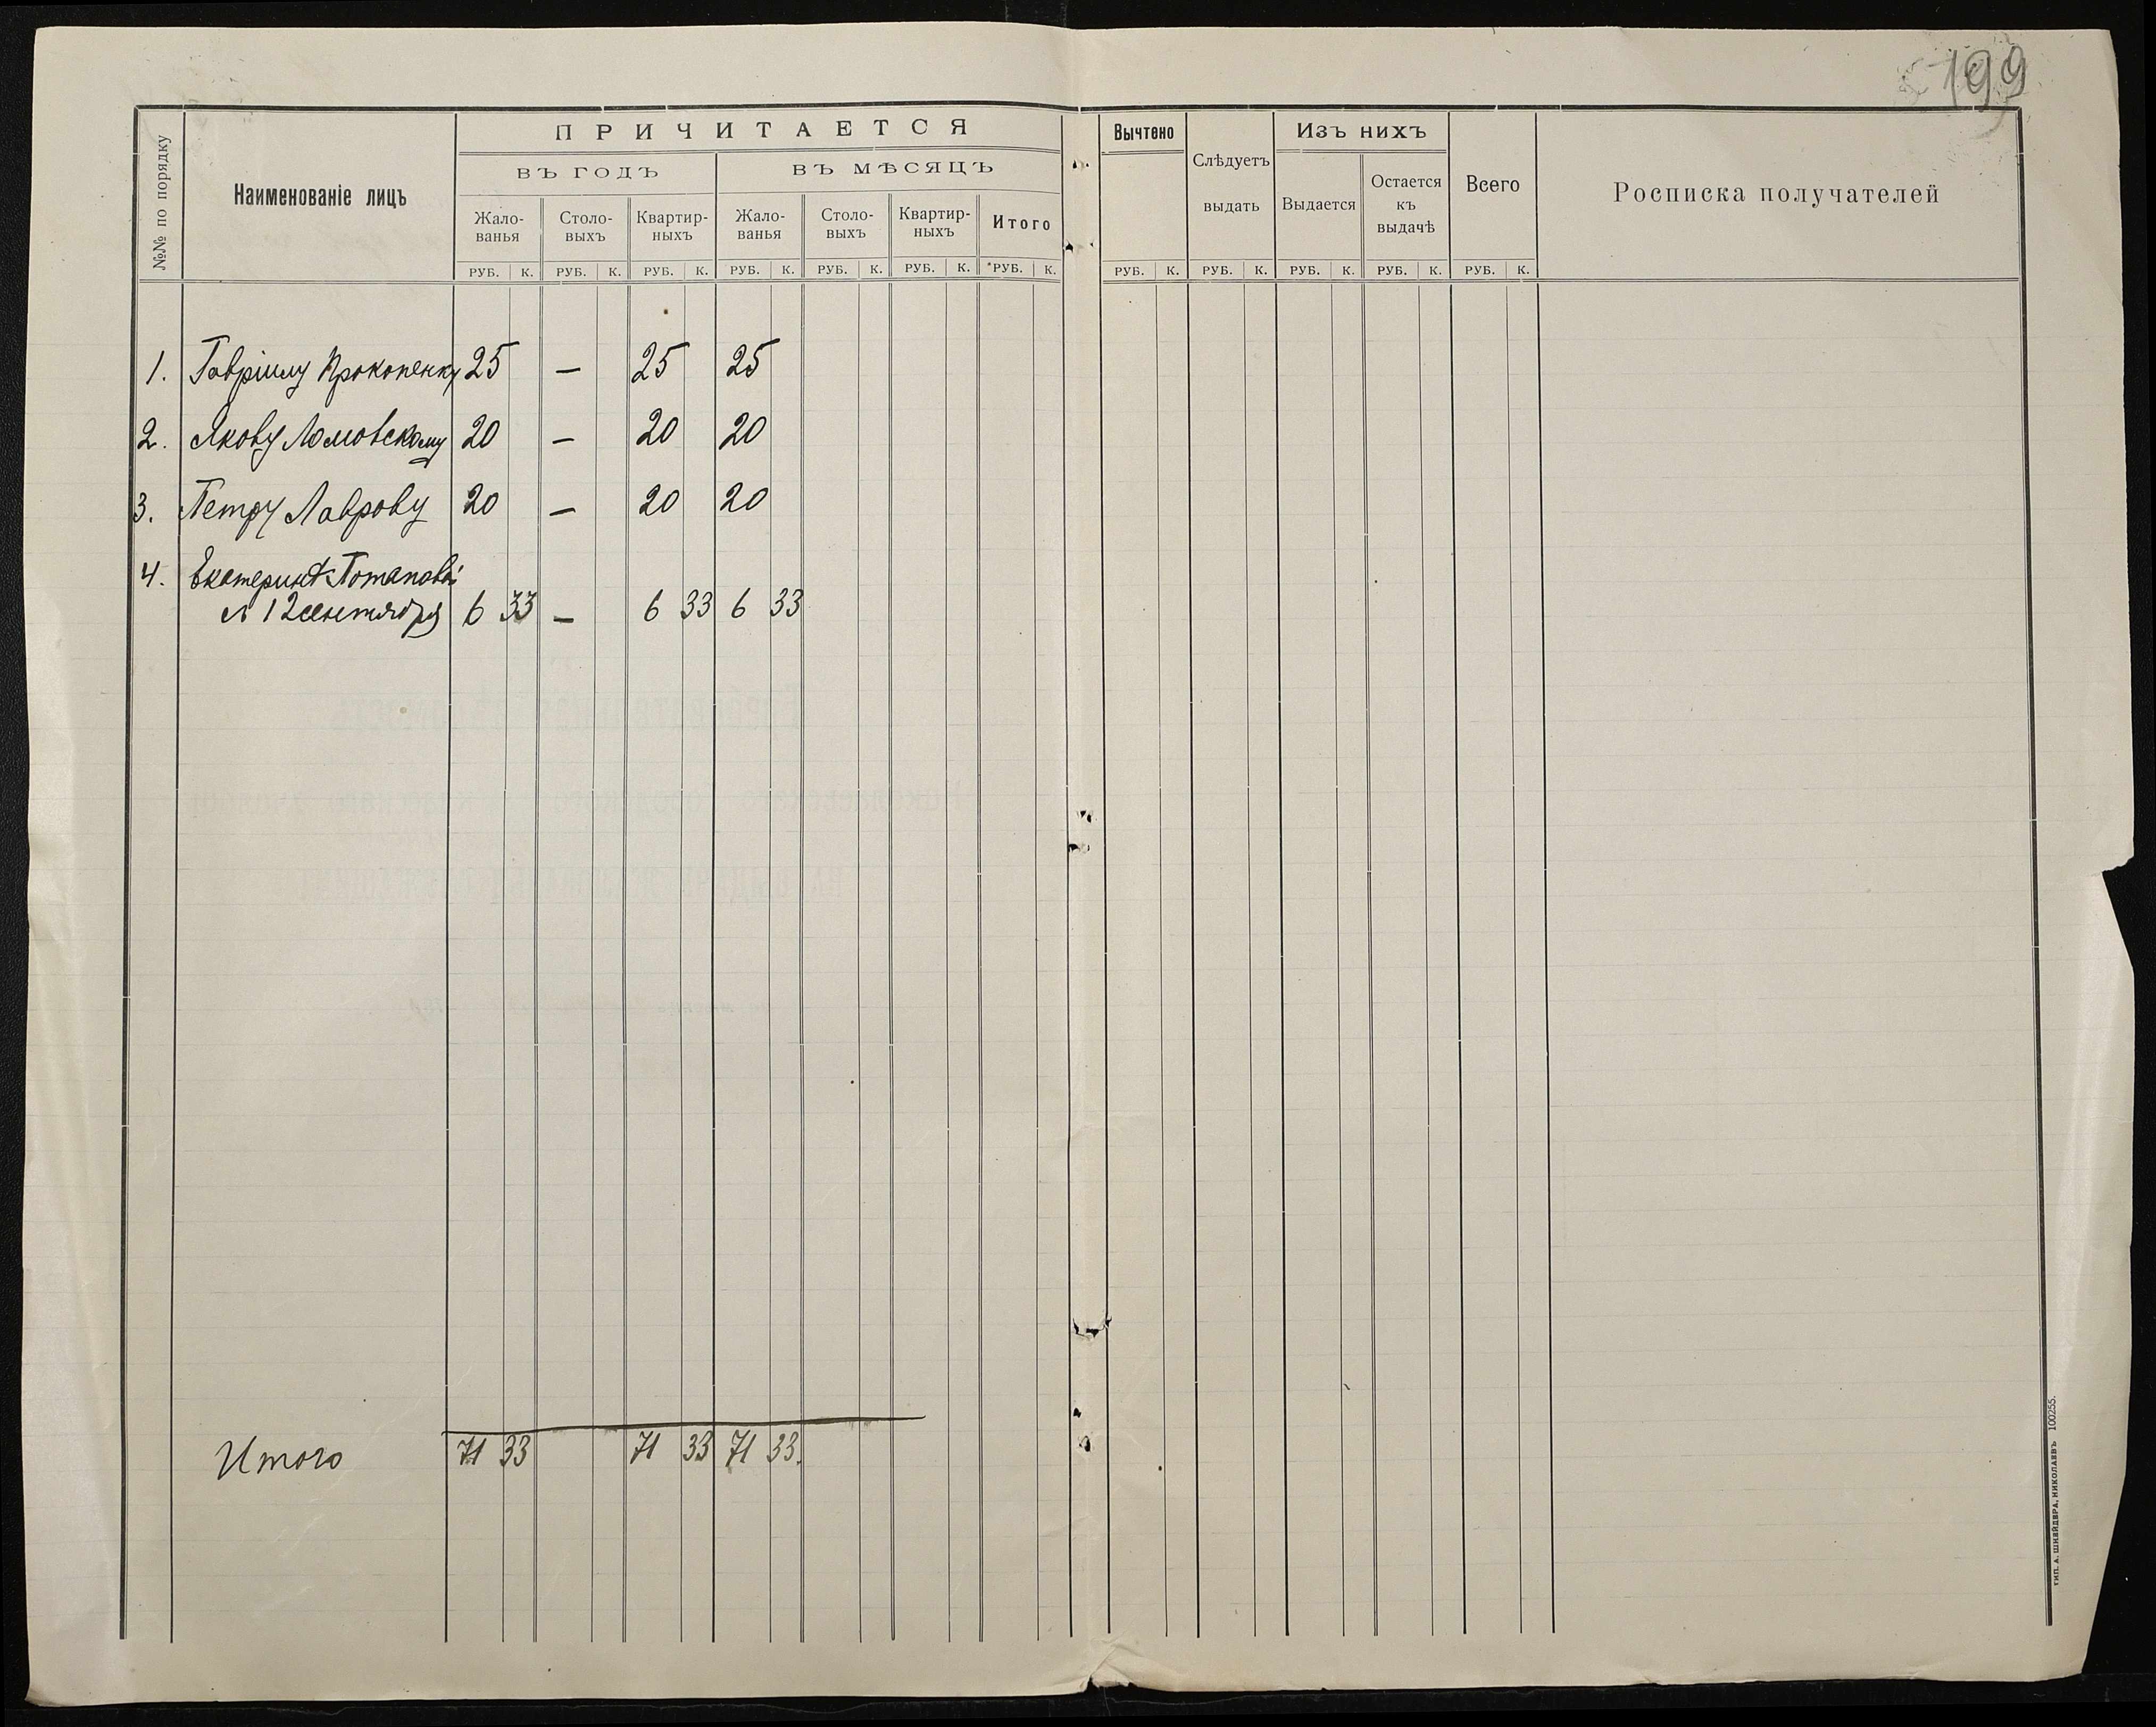 199
ПРИЧИТАЕТСЯ
ВЪ ГОДЪ
ВЪ МѢСЯЦЪ
№№ по порядку
Наименованіе лицъ
Жало-
ванья
Столо-
выхъ
Квартир-
ныхъ
Жало-
ванья
Столо-
выхъ
Квартир-
ныхъ
Итого
РУБ. К. РУБ. К. РУБ. К. РУБ. К. РУБ. К. РУБ. К. РУБ. К.
Вычтено
Слѣдуетъ
выдать
Изъ нихъ
Выдается
Остается
къ
выдачѣ
Всего
Росписка получателей
РУБ. К. РУБ. К. РУБ. К. РУБ. К. РУБ. К.
1. Гавріилу Прокопенку 25 — 25 25
2. Якову Ломовскому 20 — 20 20
3. Петру Лаврову 20 — 20 20
4. Екатеринѣ Потаповой
с 12 сентября 6 33 — 6 33 6 33
Итого 71 33 71 33 71 33.
ТИП. А. ШНЕЙДЕРА, НИКОЛАЕВЪ 100255.